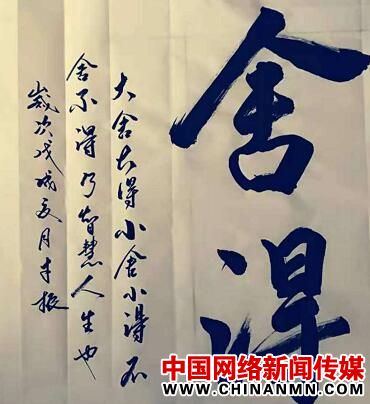 舍得
大舍大得小舍小得不
舍不得乃智慧人生也
岁次戊戌夏月丰振
中国网络新闻传媒
WWW.CHINANMN.COM